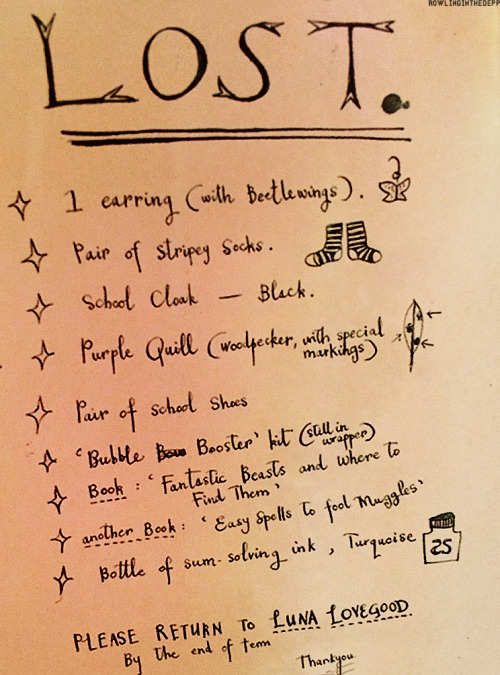 ROWLINGINTHEDEPP
LOST.
1 earring (with Beetlewings).
Pair of Stripey Socks.
School Cloak — Black.
Purple Quill (woodpecker, with special
markings)
Pair of school Shoes
'Bubble Booster' kit (still in
wrapper)
Book : 'Fantastic Beasts and Where to
Find Them'
another Book : 'Easy Spells to fool Muggles'
Bottle of sum-solving ink, Turquoise
25
PLEASE RETURN TO LUNA LOVEGOOD
By the end of term
Thankyou